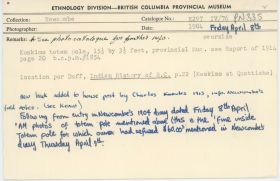 ETHNOLOGY DIVISION—BRITISH COLUMBIA PROVINCIAL MUSEUM
Collection: Newcombe Catalogue No.: E297 77/76 PN335
Photographer: Date: 1904 Friday April 8th
Remarks: * See photo catalogue for further info.
Koskimo totem pole, 15½ by 3½ feet, provincial Mus. see Report of 1914
page 20 b.c.p.m.#1854
Location per Duff, Indian History of B.C. p.22 (Koskimo at Quatishe)
was back added to house post by Charles Newcombe 1913,
field notes. (see Kenn)
Following from entry in Newcombe's 1904 diary dated Friday 8th April
"AM photos of totem pole mentioned above (this is the "Fine inside
totem pole for which owner had refused $60.00" mentioned in Newcombe's
diary Thursday April 7th.